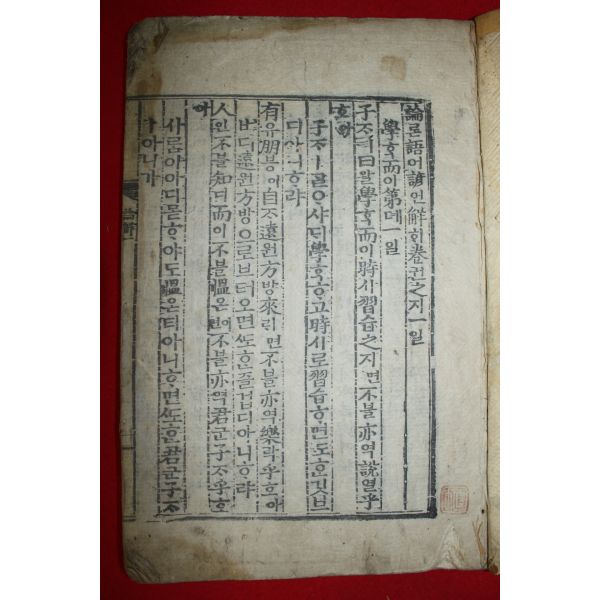 論론語어諺언解ᄒᆡ卷권之지一일
學ᄒᆞᆨ而이第뎨一일
子ᄌᆞㅣ曰왈學ᄒᆞᆨ而이時시習습之지면不블亦역說열乎
호아
子ᄌᆞㅣᄀᆞᆯᄋᆞ샤ᄃᆡ學ᄒᆞᆨᄒᆞ고時시로習습ᄒᆞ면ᄯᅩᄒᆞᆫ깃브
디아니ᄒᆞ랴
有유朋붕이自ᄌᆞ遠원方방來ᄅᆡ면不블亦역樂락乎호아
버디遠원方방으로브터오면ᄯᅩᄒᆞᆫ즐겁디아니ᄒᆞ랴
人인不블知디而이不블慍온이면不블亦역君군子ᄌᆞ乎호
아
사ᄅᆞᆷ이아디몯ᄒᆞ야도慍온티아니ᄒᆞ면ᄯᅩᄒᆞᆫ君군子ᄌᆞ
아니가